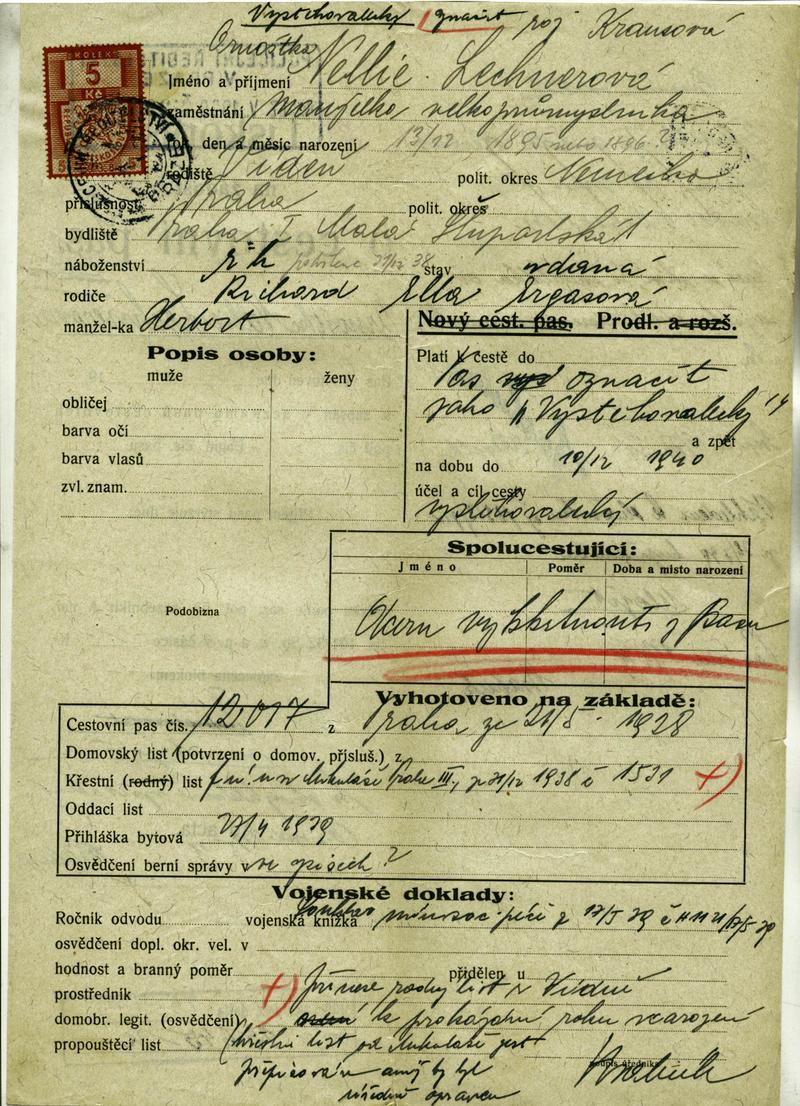 Vystěhovalecký značit roz Krausová
Ornoštka
KOLEK
5
Kč
Jméno a příjmení Nellie Lechnerová
zaměstnání Manželka velkoprůmyslníka
den a měsíc narození 13/12 1895 nebo 1896 ?
rodiště Vídeň polit. okres Německo
příslušnost Praha polit. okres
bydliště Praha I Malá Štupartská 1
náboženství ř k 21/12 38 stav vdaná
rodiče Richard Ella Ergasová
manžel-ka Herbert
Nový cest. pas. Prodl. a rozš.
Popis osoby:
muže ženy
obličej
barva očí
barva vlasů
zvl. znam.
Platí k cestě do
Pas označit
jako „Vystěhovalecký"
a zpět
na dobu do 10/12 1940
účel a cíl cesty
vystěhovalecký
Spolucestující:
Jméno Poměr Doba a místo narození
z Pasu
Podobizna
Vyhotoveno na základě:
Cestovní pas čís. 12017 z Praha ze 21/5 1928
Domovský list (potvrzení o domov. přísluš.) z
Křestní (rodný) list Mikuláše Praha III, z 21/12 1938 č 1531 +)
Oddací list
Přihláška bytová 27/4 1939
Osvědčení berní správy v ve spisech ?
Vojenské doklady:
Ročník odvodu vojenská knížka Souhlas péče z 17/5 39 č
osvědčení dopl. okr. vel. v
hodnost a branný poměr přidělen u
prostředník +) přinese rodný list z Vídně
domobr. legit. (osvědčení) k prokázání roku narození
propouštěcí list (křestní list od Mikuláše jest
přepisován aniž by byl
podpis úředníka
úředně opraven